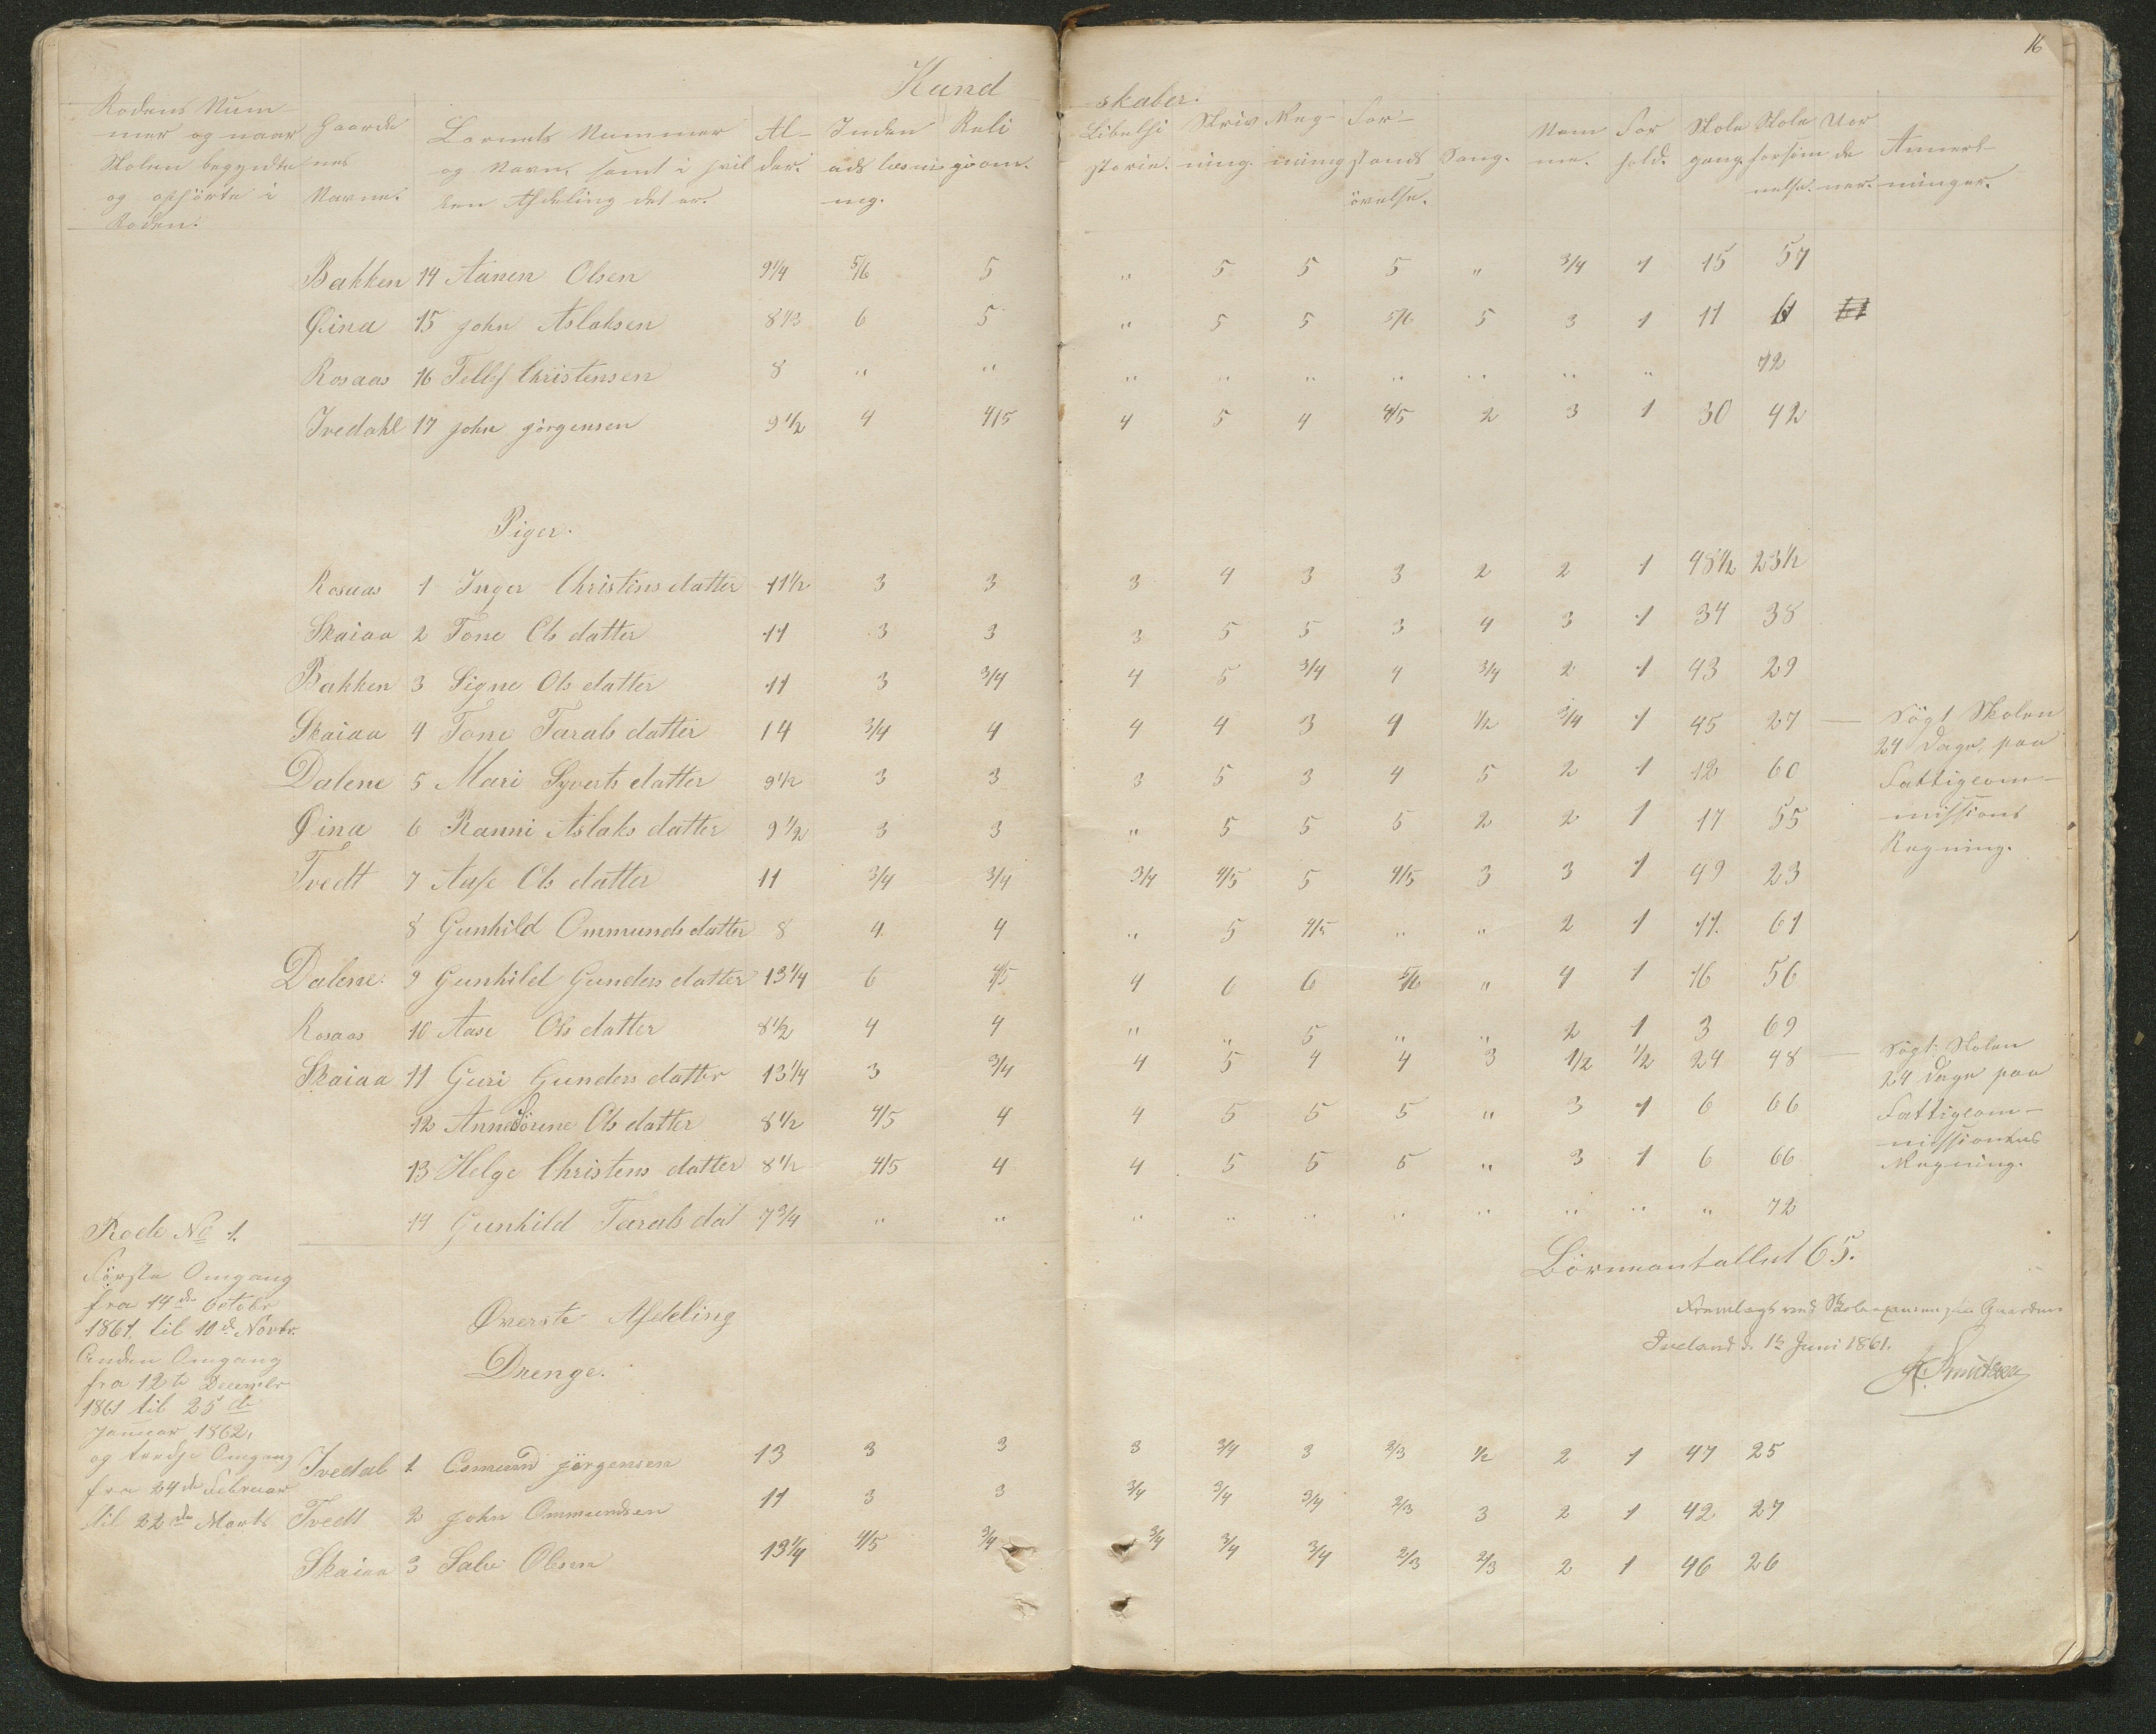 16
Kund skaber.
Rodens Num-
mer og naar
Skolen begyndte
og ophörte i
Roden.
Gaarde
nes
Navne.
Barnets Nummer
og Navn, samt i hvil
ken Afdeling det er.
Al-
der.
Inden
ads læsni
ng.
Reli
gioon.
Bibelhi
storie.
Skriv
ning.
Reg-
ning
For-
stands
övelse.
Sang.
Nem
me.
For
hold.
Skole
gang.
Skole
forsöm
nelse.
Vor
de
ner.
Anmerk-
ninger.
Bakken 14 Aanen Olsen 9 1/4 5/6 5 " 5 5 5 " 3/4 1 15 57
Øina 15 John Aslaksen 8 1/2 6 5 " 5 5 5/6 5 3 1 11 61
Rosaas 16 Tellef Christensen 8 " " " " " " " " " 72
Ivedahl 17 John Jörgensen 9 1/2 4 4/5 4 5 4 4/5 2 3 1 30 42
Piger.
Rosaas 1 Inger Christens datter 11 1/2 3 3 3 4 3 3 2 2 1 48 1/2 23 1/2
Skaiaa 2 Tone Ols datter 11 3 3 3 5 5 3 4 3 1 34 38
Bakken 3 Signe Ols datter 11 3 3/4 4 5 3/4 4 3/4 2 1 43 29
Skaiaa 4 Tone Tarals datter 14 3/4 4 4 4 3 4 1/2 3/4 1 45 27 — Sögt Skolen
24 Dage, paa
Fattigcom-
missions
Regning.
Dalene 5 Mari Syverts datter 9 1/2 3 3 3 5 3 4 5 2 1 12 60
Øina 6 Ranni Aslaks datter 9 1/2 3 3 " 5 5 5 2 2 1 17 55
Tvedt 7 Aase Ols datter 11 3/4 3/4 3/4 4/5 5 4/5 3 3 1 49 23
8 Gunhild Ommunds datter 8 4 4 " 5 4/5 " " 2 1 11. 61
Dalene. 9 Gunhild Gunders datter 13 1/4 6 4/5 4 6 6 5/6 " 4 1 16 56
Rosaas 10 Aase Ols datter 8 1/2 4 4 " " 5 " " 2 1 3 69
Skaiaa 11 Guri Gunders datter 13 1/4 3 3/4 4 5 4 4 3 1/2 1/2 24 48 — Sögt Skolen
24 Dage paa
Fattigcom-
missionens
Regning.
12 Anne Sörine Ols datter 8 1/2 4/5 4 4 5 5 5 " 3 1 6 66
13 Helge Christens datter 8 1/2 4/5 4 4 5 5 5 " 3 1 6 66
14 Gunhild Tarals dat 7 3/4 " " " " " " " " " " 72
Börneantallet 65.
Fremlagt ved Skoleexamen paa Gaarden
Iveland d. 12 Juni 1861.
Knudsen
Rode No 1.
Förste Omgang
fra 14de October
1861, til 10de Novbr.
Anden Omgang
fra 12te December
1861 til 25de
Januar 1862,
og tredje Omgang
fra 24de Februar
til 22de Marts
Øverste Afdeling
Drenge.
Ivedal 1 Osmund Jörgensen 13 3 3 3 3/4 3 2/3 1/2 2 1 47 25
Tvedt 2 John Ommundsen 11 3 3 3/4 3/4 3/4 2/3 3 2 1 42 27
Skaiaa 3 Salve Olsen 13 1/4 4/5 3/4 3/4 3/4 3/4 2/3 2/3 2 1 46 26